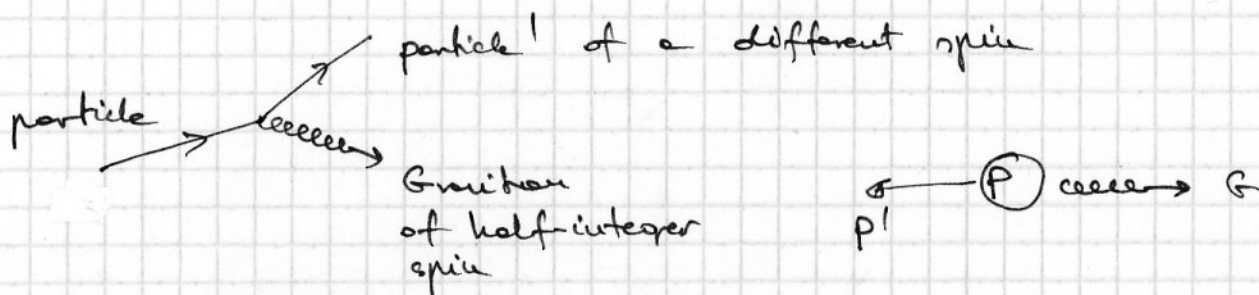 particle' of a different spin
particle
Graviton
of half-integer
spin
P
G
P'